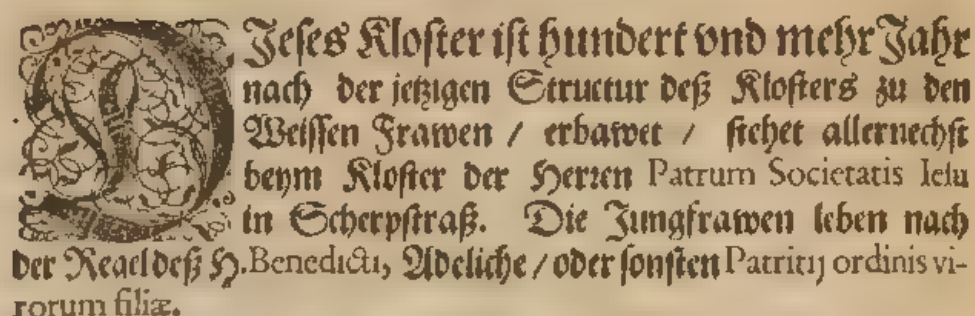 DJeses Kloster ist hundert vnd mehr Jahr
nach der jetzigen Structur deß Klosters zu den
Weissen Frawen / erbawet / stehet allernechst
beym Kloster der Herren Patrum Societatis Iesu
in Scherpstraß. Die Jungfrawen leben nach
der Regel deß H. Benedicti, Adeliche / oder sonsten Patritij ordinis vi-
rorum filiæ.